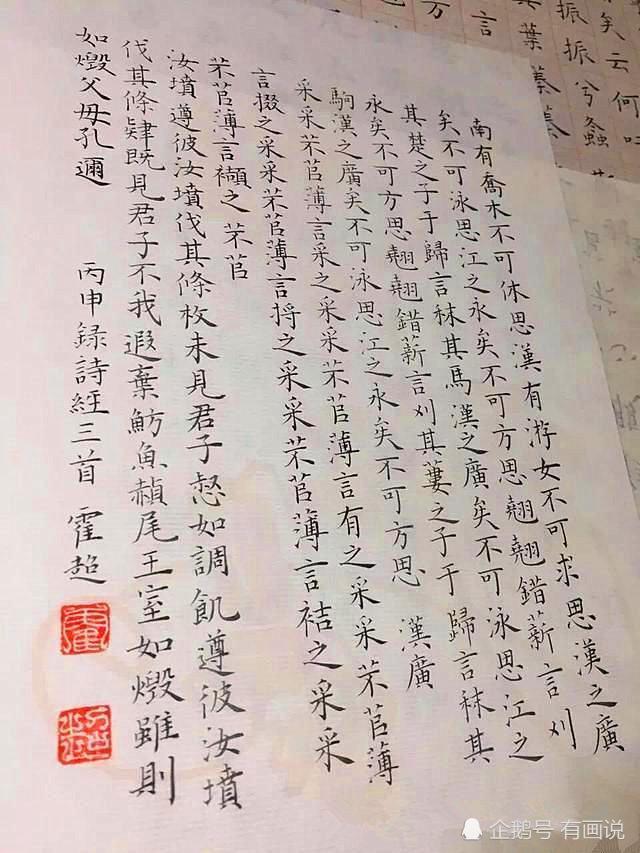 矣云何吁
振振兮螽
其葉蓁蓁
言
南有喬木不可休思漢有游女不可求思漢之廣
矣不可泳思江之永矣不可方思翹翹錯薪言刈
其楚之子于歸言秣其馬漢之廣矣不可泳思江之
永矣不可方思翹翹錯薪言刈其蔞之子于歸言秣其
駒漢之廣矣不可泳思江之永矣不可方思 漢廣
采采芣苢薄言采之采采芣苢薄言有之采采芣苢薄
言掇之采采芣苢薄言捋之采采芣苢薄言袺之采采
芣苢薄言襭之 芣苢
汝墳遵彼汝墳伐其條枚未見君子惄如調飢遵彼汝墳
伐其條肄既見君子不我遐棄魴魚赬尾王室如燬雖則
如燬父母孔邇
丙申録詩經三首 霍超
霍
超
企鹅号 有画说